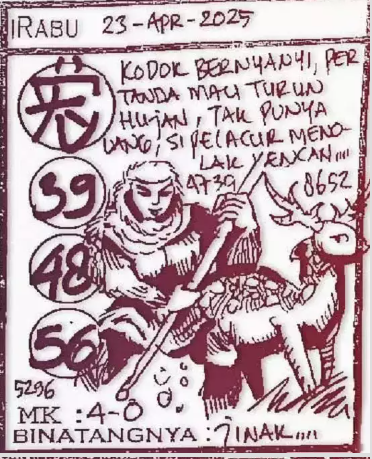 RABU 23-APR-2025
KODOK BERNYANYI, PER
TANDA MAU TURUN
HUJAN, TAK PUNYA
UANG, SI PELACUR MENO-
LAK KENCAN....
4739
8652
39
48
56
5296
MK : 4-0
BINATANGNYA : JINAK....